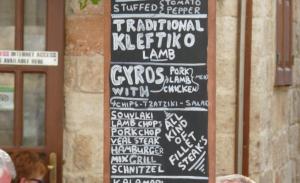 STUFFED TOMATO
PEPPER
TRADITIONAL
KLEFTIKO
LAMB
GYROS
WITH
PORK
LAMB
CHICKEN
CHIPS-TZATZIKI-SALAD
SOUVLAKI
LAMB CHOPS
PORKCHOP
VEAL STEAK
HAMBURGER
MIX GRILL
SCHNITZEL
ALL
KIND
OF
FILLET
STEAKS
INTERNET ACCESS
AVAILABLE HERE